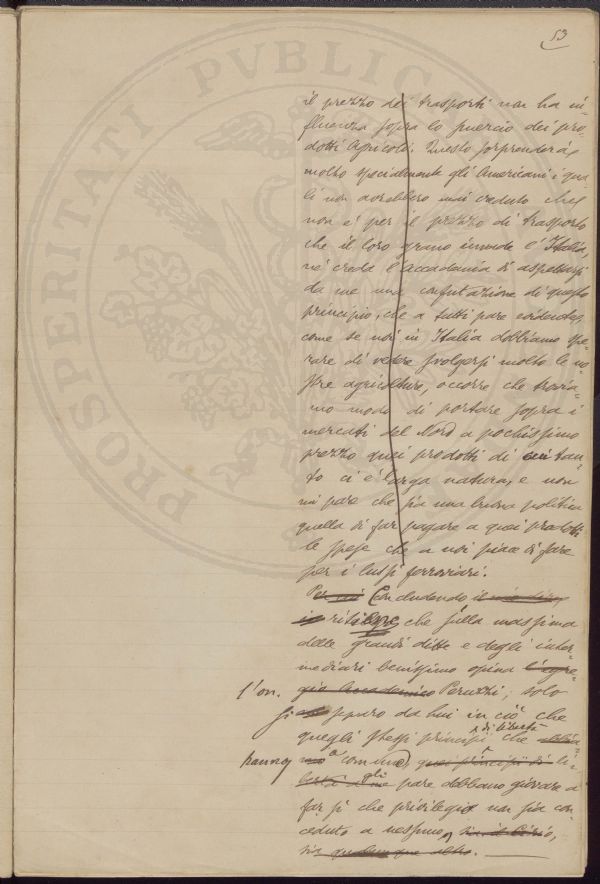 53
PROSPERITATI PVBLICA
il prezzo dei trasporti non ha in-
fluenza sopra lo smercio dei pro-
dotti Agricoli. Questo sorprenderà
molto specialmente gli Americani i qua-
li non avrebbero mai creduto che
non è per il prezzo di trasporto
che il loro grano invade l'Italia,
nè creda l'Accademia di aspettarsi
da me una confutazione di questo
principio, che a tutti pare evidente,
come se noi in Italia dobbiamo spe-
rare di vedere svolgersi molto le no-
stre agricolture, occorre che trovia-
mo modo di portare sopra i
mercati del Nord a pochissimo
prezzo quei prodotti di cui tan-
to ci è larga natura, e non
mi pare che sia una buona politica
quella di far pagare a quei prodotti
le spese che a noi piace di fare
per i lussi ferroviari.
Concludendo
che sulla massima
delle grandi ditte e degli inter-
mediari benissimo opina l'egre-
l'on. gio Accademico Peruzzi; solo
si separo da lui in ciò che
quegli stessi principi di libertà che abbia-
hanno mo comune, quei principi di li-
bertà gli pare debbano giovare a
far sì che privilegio non sia con-
cesso a nessuno, sia il Cirio,
sia qualunque altro.